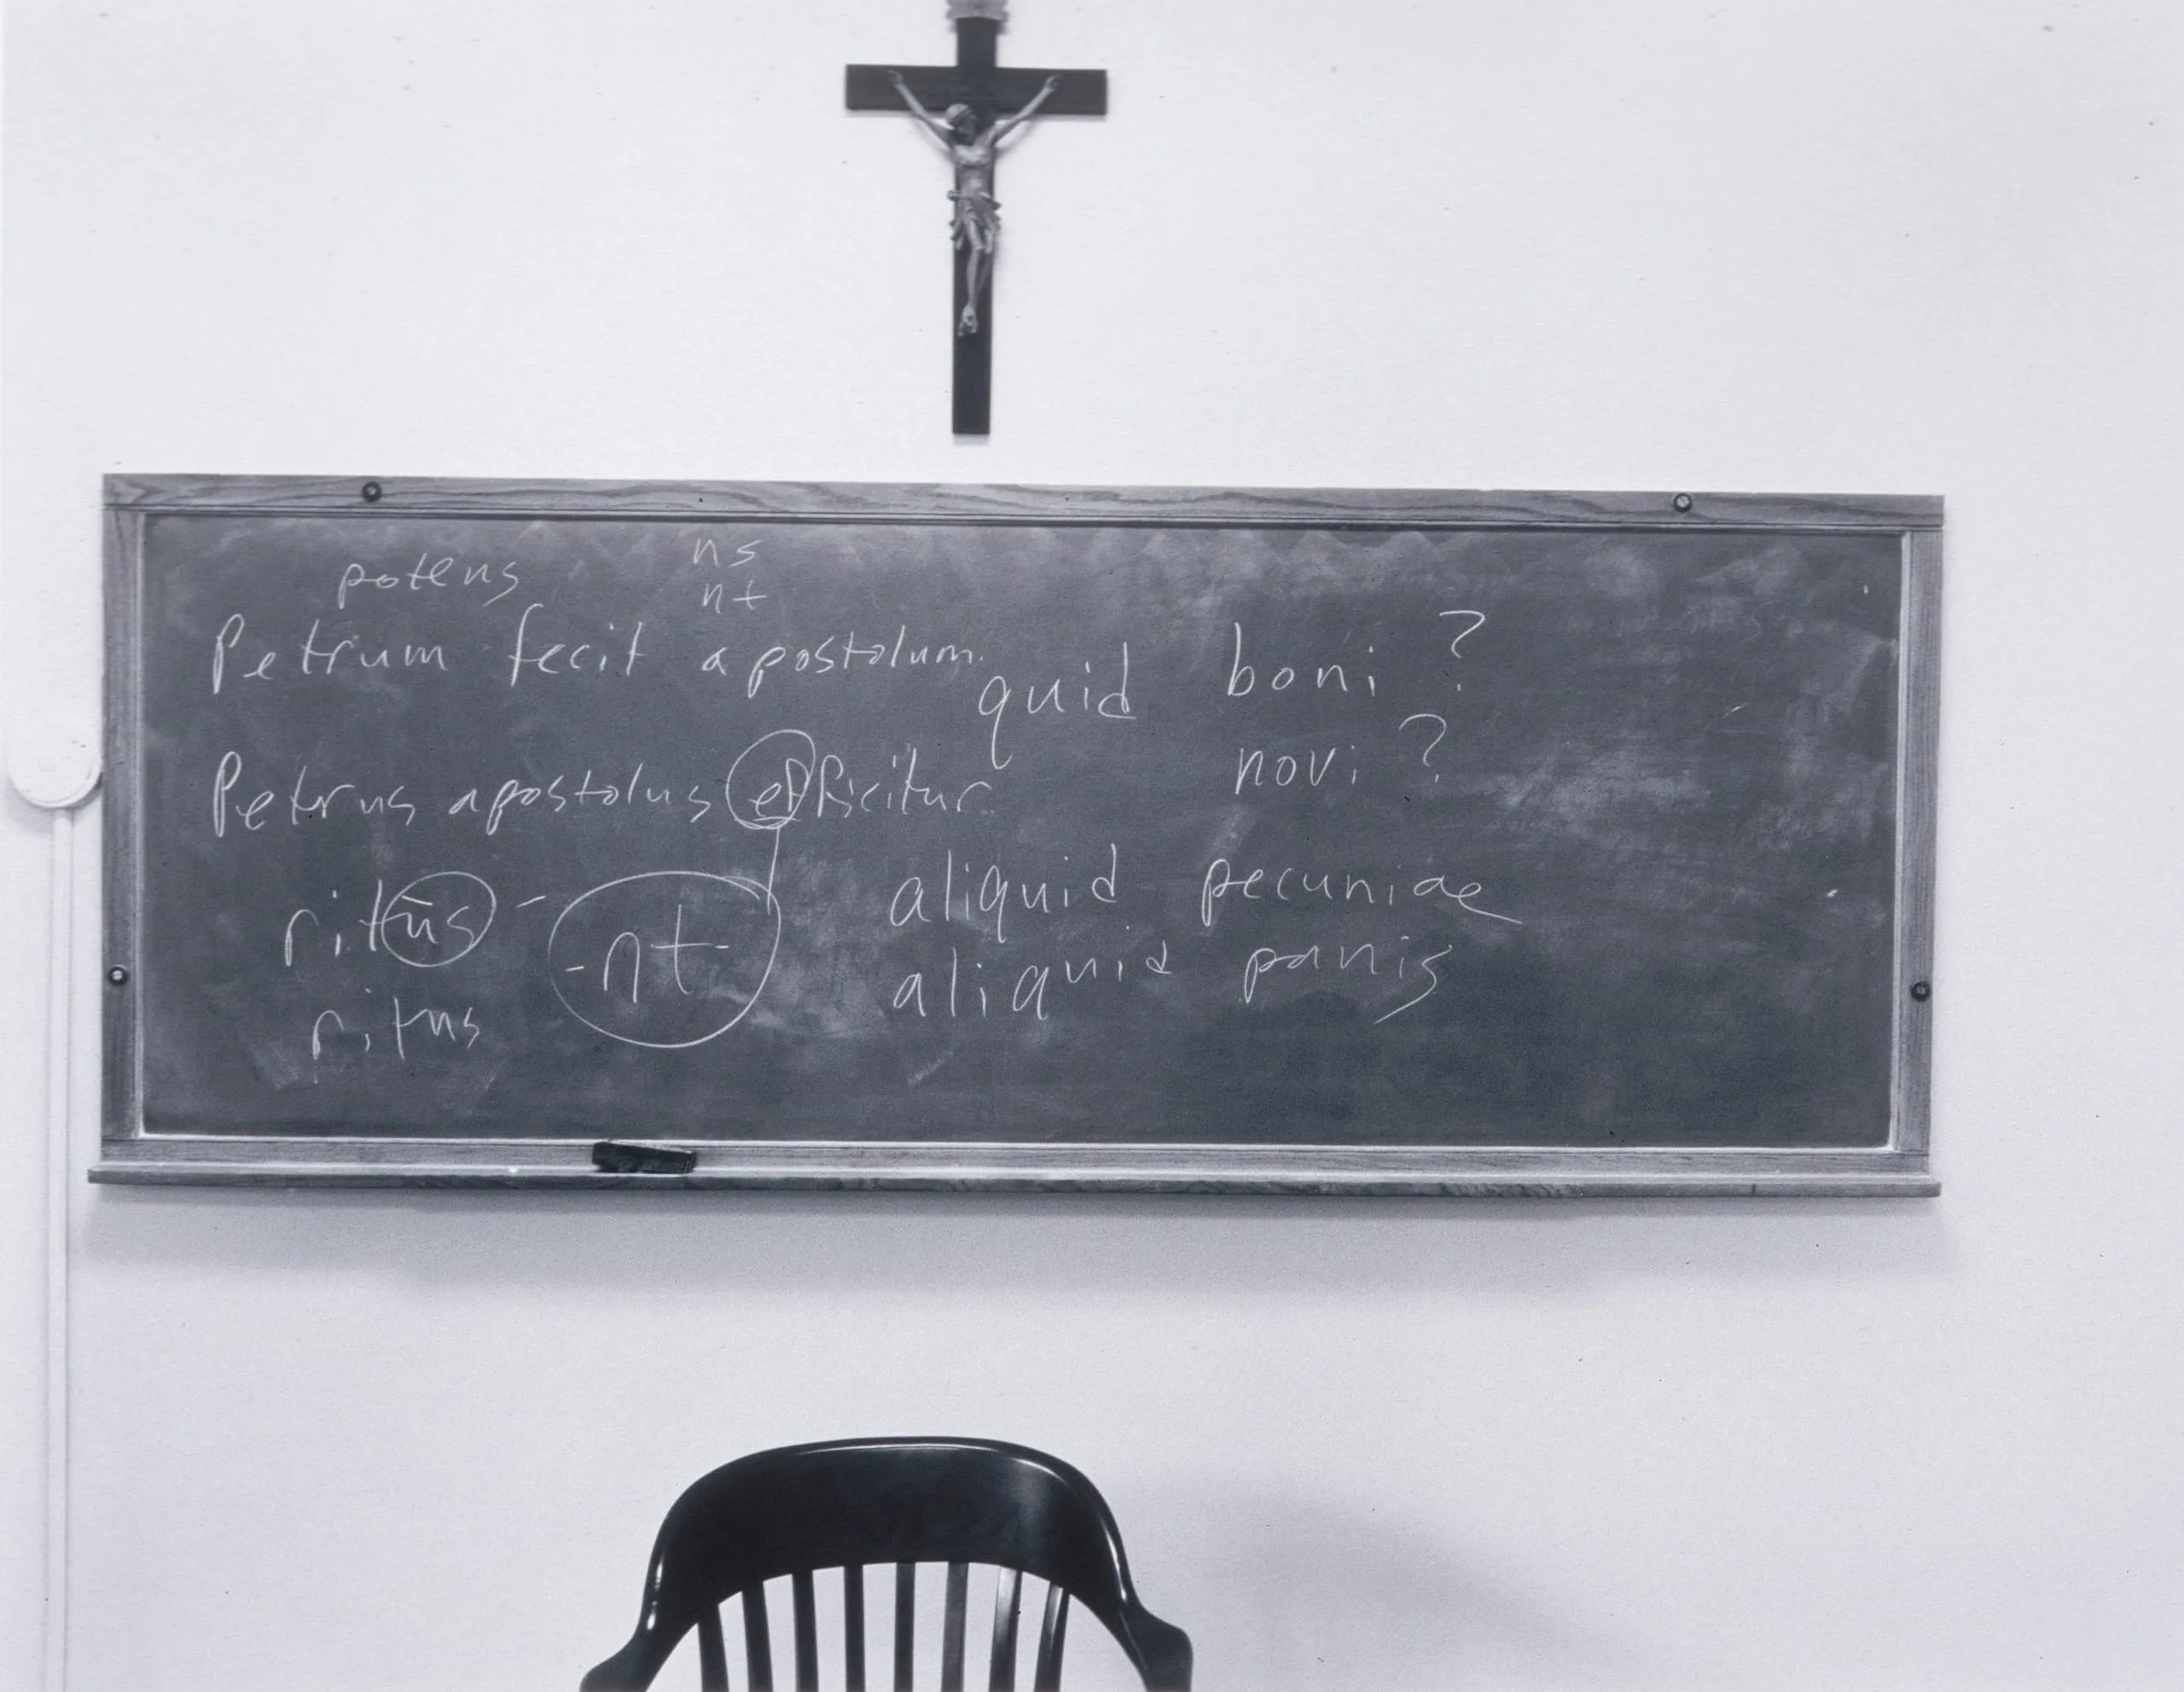 potens
ns
nt
Petrum fecit apostolum.
quid boni ?
novi ?
Petrus apostolus efficitur.
ritūs -
-nt-
ritus
aliquid pecuniae
aliquid panis